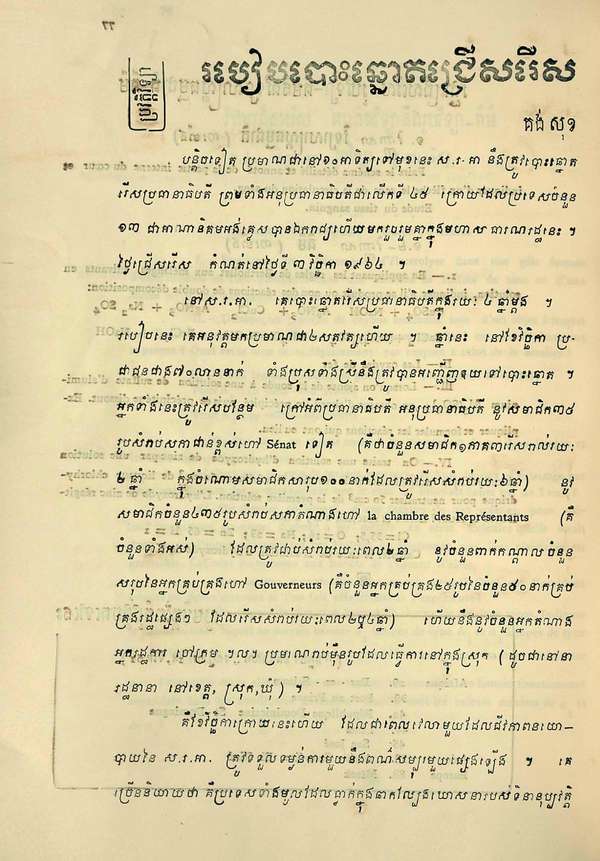 77
របៀបបោះឆ្នោតជ្រើសរើស
គង់ សុខ
បន្តិចទៀត ប្រមាណជានៅ១០អាទិត្យទៅមុខនេះ ស.រ.អា នឹងត្រូវបោះឆ្នោត
រើសប្រធានាធិបតី ព្រមទាំងអនុប្រធានាធិបតីជាលើកទី ៤៥ ក្រោយដែលប្រទេសចំនួន
១៣ ជាអាណានិគមអង់គ្លេសបានឯករាជ្យហើយមករួបរួមគ្នាក្នុងមហាសធារណរដ្ឋនេះ ។
ថ្ងៃជ្រើសរើស កំណត់នៅថ្ងៃទី ៣ វិច្ឆិកា ១៩៦៤ ។
នៅស.រ.អា. គេបោះឆ្នោតរើសប្រធានាធិបតីក្នុងរយៈ ៤ ឆ្នាំម្តង ។
របៀបនេះ គេអនុវត្តមកប្រមាណជា២សតវត្សហើយ ។ ឆ្នាំនេះ នៅខែវិច្ឆិកា ប្រ-
ជាជនជាង៧០លាននាក់ ទាំងប្រុសទាំងស្រីនឹងត្រូវបានអញ្ជើញឲ្យទៅបោះឆ្នោត ។
អ្នកទាំងនេះត្រូវរើសបន្ថែម ក្រៅអំពីប្រធានាធិបតី អនុប្រធានាធិបតី នូវសមាជិក៣៤
រូបសំរាប់សភាជាន់ខ្ពស់ហៅ Sénat ទៀត (គឺជាចំនួនសមាជិក១ភាគ៣រើសរាល់រយៈ
២ ឆ្នាំ ក្នុងចំណោមសមាជិកសរុប១០០នាក់ដែលត្រូវរើសសំរាប់រយៈ៦ឆ្នាំ) នូវ
សមាជិកចំនួន៤៣៥រូបសំរាប់សភាតំណាងហៅ la chambre des Représentants (គឺ
ចំនួនទាំងអស់) ដែលត្រូវជាប់សំរាប់រយៈពេល២ឆ្នាំ នូវចំនួនពាក់កណ្តាលចំនួន
សរុបនៃអ្នកគ្រប់គ្រងហៅ Gouverneurs (គឺចំនួនអ្នកគ្រប់គ្រង២៥រូបនៃចំនួន៥០នាក់គ្រប់
គ្រងរដ្ឋផ្សេងៗ ដែលរើសសំរាប់រយៈពេល២ឬ៤ឆ្នាំ) ហើយនឹងនូវចំនួនអ្នកតំណាង
អ្នករដ្ឋការ ចៅក្រម ។ល។ ប្រមាណរាប់ម៉ឺនរូបដែលធ្វើការនៅក្នុងស្រុក (ដូចជានៅនា
រដ្ឋនានា នៅខេត្ត, ស្រុក, ឃុំ) ។
គឺខែវិច្ឆិកាក្រោយនេះហើយ ដែលជាពេលវេលាមួយដែលជីវភាពនយោ-
បាយនៃ ស.រ.អា. ត្រូវទទួលទម្ងន់ការមួយនឹងពណ៌សម្បុរមួយផ្សេងឡើង ។ គេ
ច្រើននិយាយថា គឺប្រទេសទាំងមូលដែលធ្លាក់ក្នុងឆាកល្បែងឃោសនារបស់ទិនានុប្បវត្តិ